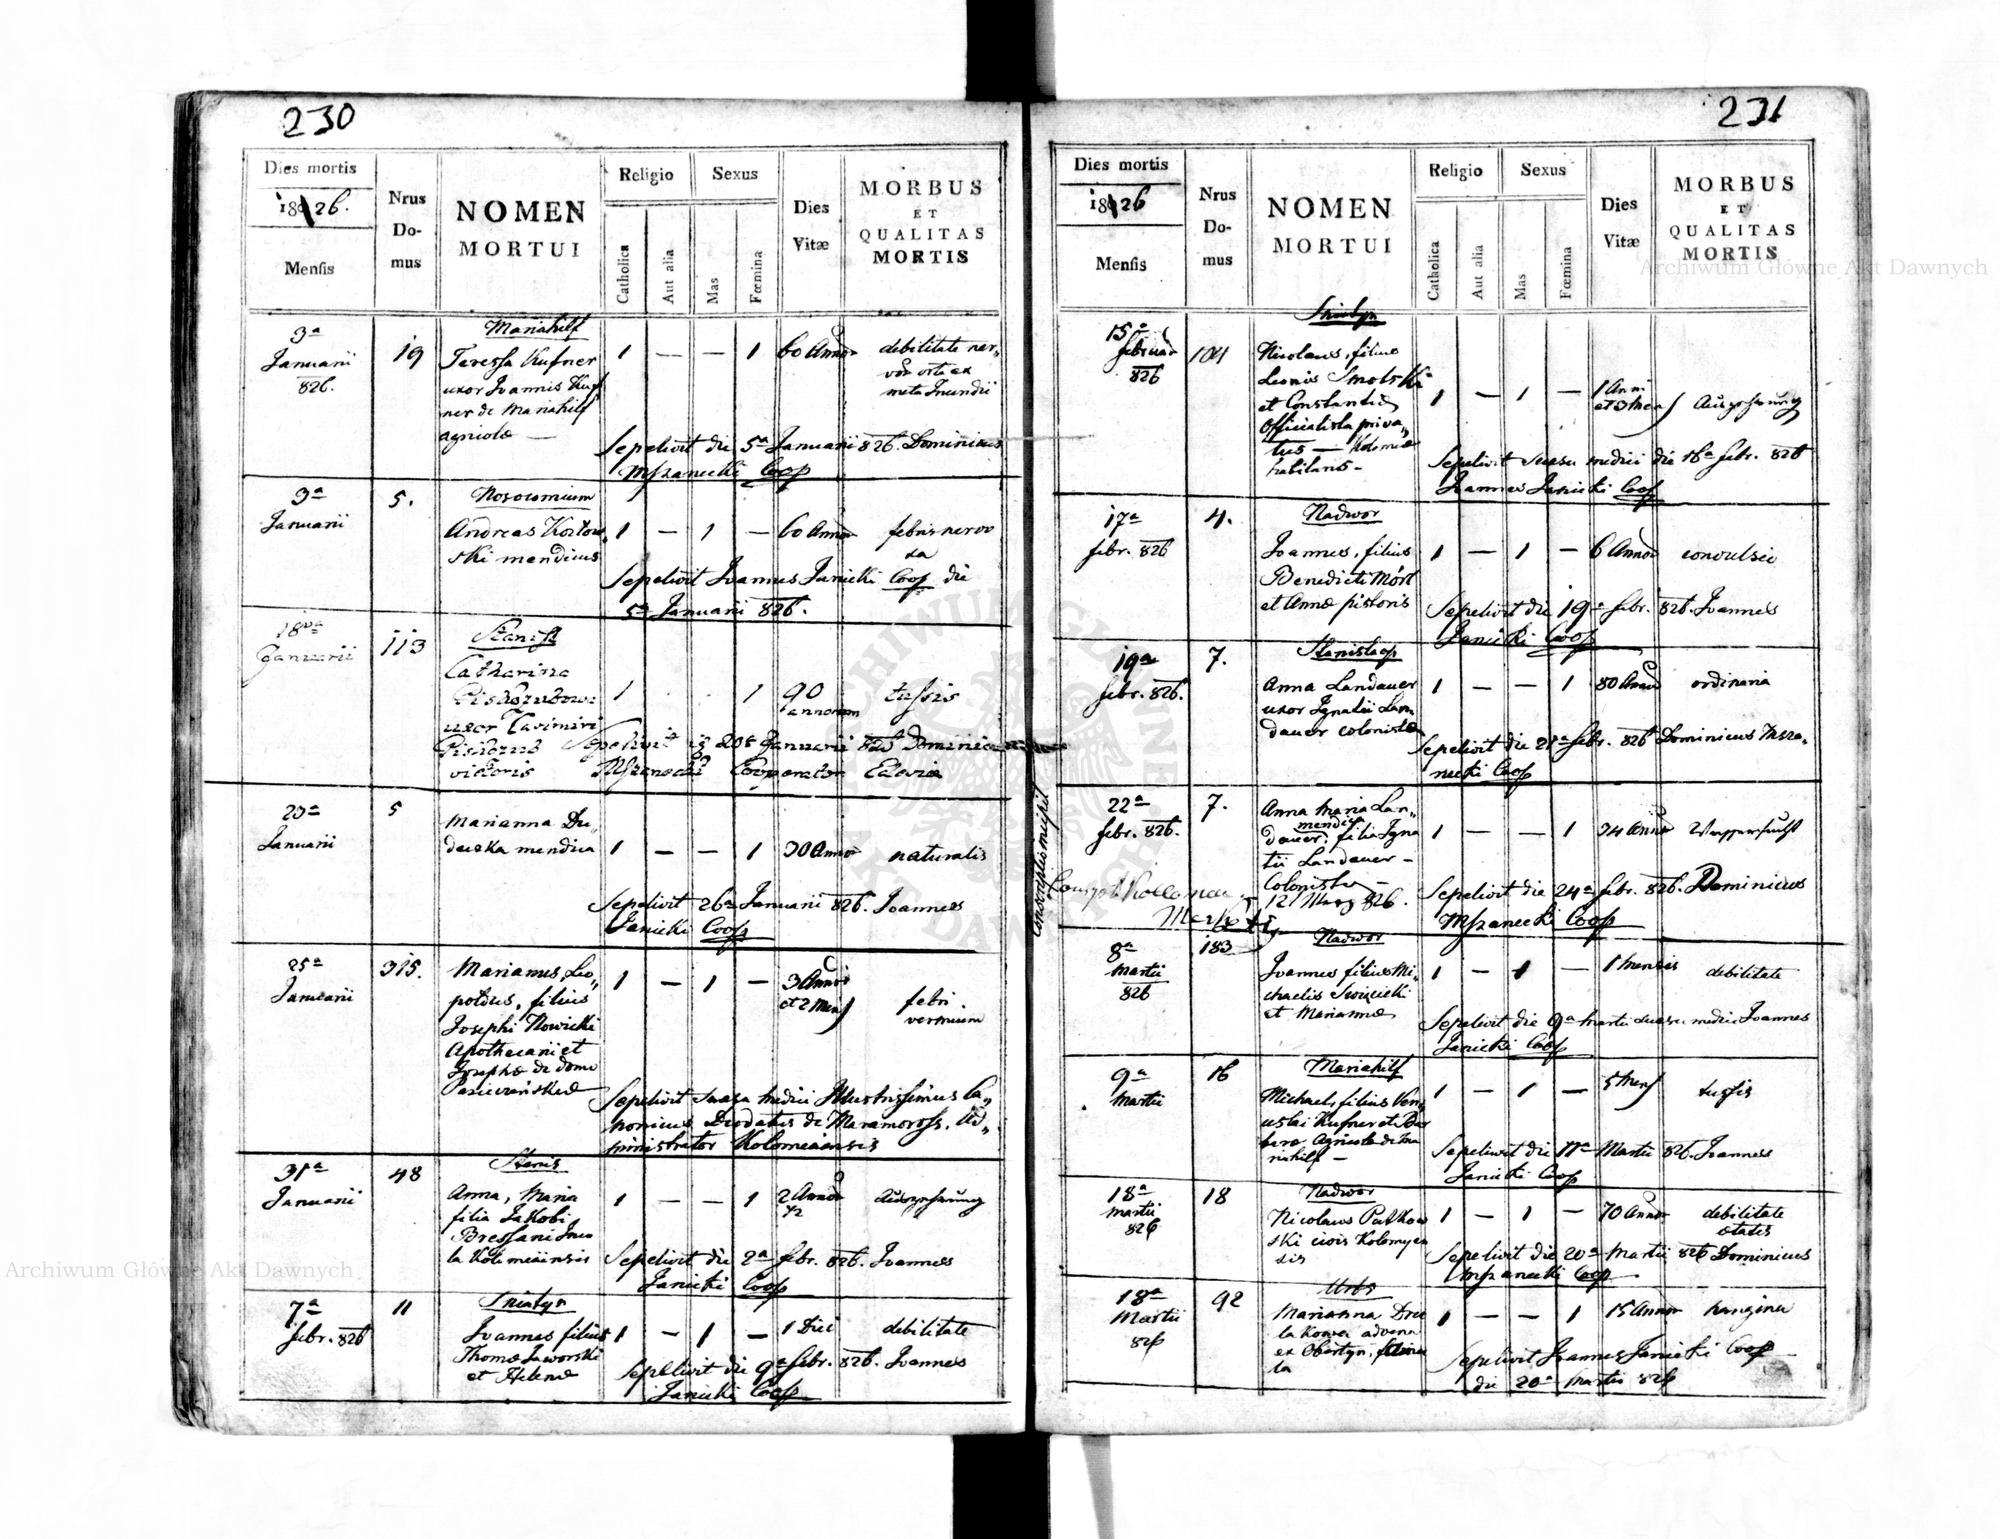 230
Dies mortis
1826.
Mensis
Nrus
Do-
mus
NOMEN
MORTUI
Religio
Catholica
Aut alia
Sexus
Mas
Fœmina
Dies
Vitæ
MORBUS
ET
QUALITAS
MORTIS
3a
Januarii
826.
19
Mariahilf
Teressa Kufner
uxor Joannis Kuf
ner de Mariahilf
agricolæ —
1 — — 1
60 Annor
debilitate ner„
Sepelivit die 5a Januarii 826. Dominicus
Mszanecki Coop
3a
Januarii
5.
Nosocomium
Andreas Kozlow„
ski mendicus
1 — 1 —
60 Annor
febris nervo
sa
Sepelivit Joannes Janicki Coop die
5a Januarii 826.
18va
Januarii
113
Stanisl
Catharina
uxor Casimiri
1 1
90
annorum
tussis
20a Januarii 826 Dominicus
Mszanecki Cooperator
23a
Januarii
5
Marianna Du„
deuska mendica
1 — — 1
30 Annor
naturalis
Sepelivit 26a Januarii 826. Joannes
Janicki Coop
25a
Januarii
315.
Marianus, Leo„
poldus, filius
Josephi Nowicki
Apothecarii et
Josephæ de domo
1 — 1 —
3 Annor
et 2 Mens
febri
vermium
Sepelivit suasu medici Illustrissimus Ca„
nonicus Deodatus de Maramoross. Ad„
ministrator Kolomeaensis
31a
Januarii
48
Stanis
Anna, Maria
filia Jakobi
Bressani Inco
la Kolomeaensis
1 — — 1
2 Annor
1/2
Auszehrung
Sepelivit die 2a febr. 826. Joannes
Janicki Coop
7a
febr. 826
11
Sniatyn
Joannes filius
Thomæ Jaworski
et Helenæ
1 — 1 —
1 Diei
debilitate
Sepelivit die 9a febr. 826. Joannes
Janicki Coop
231
Dies mortis
1826
Mensis
Nrus
Do-
mus
NOMEN
MORTUI
Religio
Catholica
Aut alia
Sexus
Mas
Fœmina
Dies
Vitæ
MORBUS
ET
QUALITAS
MORTIS
15a
februar
826
101
Sniatyn
Nicolaus, filius
Leonis Smolski
et Constantiæ
Officialista priva„
tus — Kolomeæ
habitans —
1 — 1 —
1 Anni
et 3 Mens
Auszehrung
Sepelivit suasu medici die 16a febr. 826
Joannes Janicki Coop
17a
febr. 826
4.
Nadwor
Joannes, filius
Benedicti Mórl
et Annæ pistoris
1 — 1 —
6 Annor
convulsio
Sepelivit die 19a febr. 826. Joannes
Janicki Coop
19a
febr. 826.
7.
Stanislaop
Anna Landauer
uxor Ignatii Lan
dauer colonistæ
1 — — 1
80 Annor
ordinaria
Sepelivit die 21a febr. 826 Dominicus Msza„
necki Coop
22a
febr. 826.
7.
Anna Maria Lan„
dauer, filia Igna
tii Landauer —
Colonistæ —
12 Marz 826.
1 — — 1
34 Annor
Wassersucht
Sepelivit die 24a febr. 826. Dominicus
Mszanecki Coop
8a
Martii
826
183
Nadwor
Joannes filius Mi„
chaelis Swięcicki
et Mariannæ
1 — 1 —
1 mensis
debilitate
Sepelivit die 9a Martii suasu medici Joannes
Janicki Coop
9a
Martii
16
Mariahilf
Michael, filius Ven„
ceslai Kufner et Bar
baræ Agricolæ de Ma
riahilf —
1 — 1 —
5 Mens
tussis
Sepelivit die 11a Martii 826. Joannes
Janicki Coop
18a
Martii
826
18
Nadwor
Nicolaus Patkow
ski civis Kolomyen
sis
1 — 1 —
70 Annor
debilitate
ætatis
Sepelivit die 20a Martii 826 Dominicus
Mszanecki Coop
18a
Martii
826
92
Urbs
Marianna Dro
lakowa advena
ex Obertyn, famu
la
1 — — 1
15 Annor
Sepelivit Joannes Janicki Coop
die 20a Martii 826
Archiwum Główne Akt Dawnych
Archiwum Główne Akt Dawnych
ARCHIWUM GŁÓWNE AKT DAWNYCH